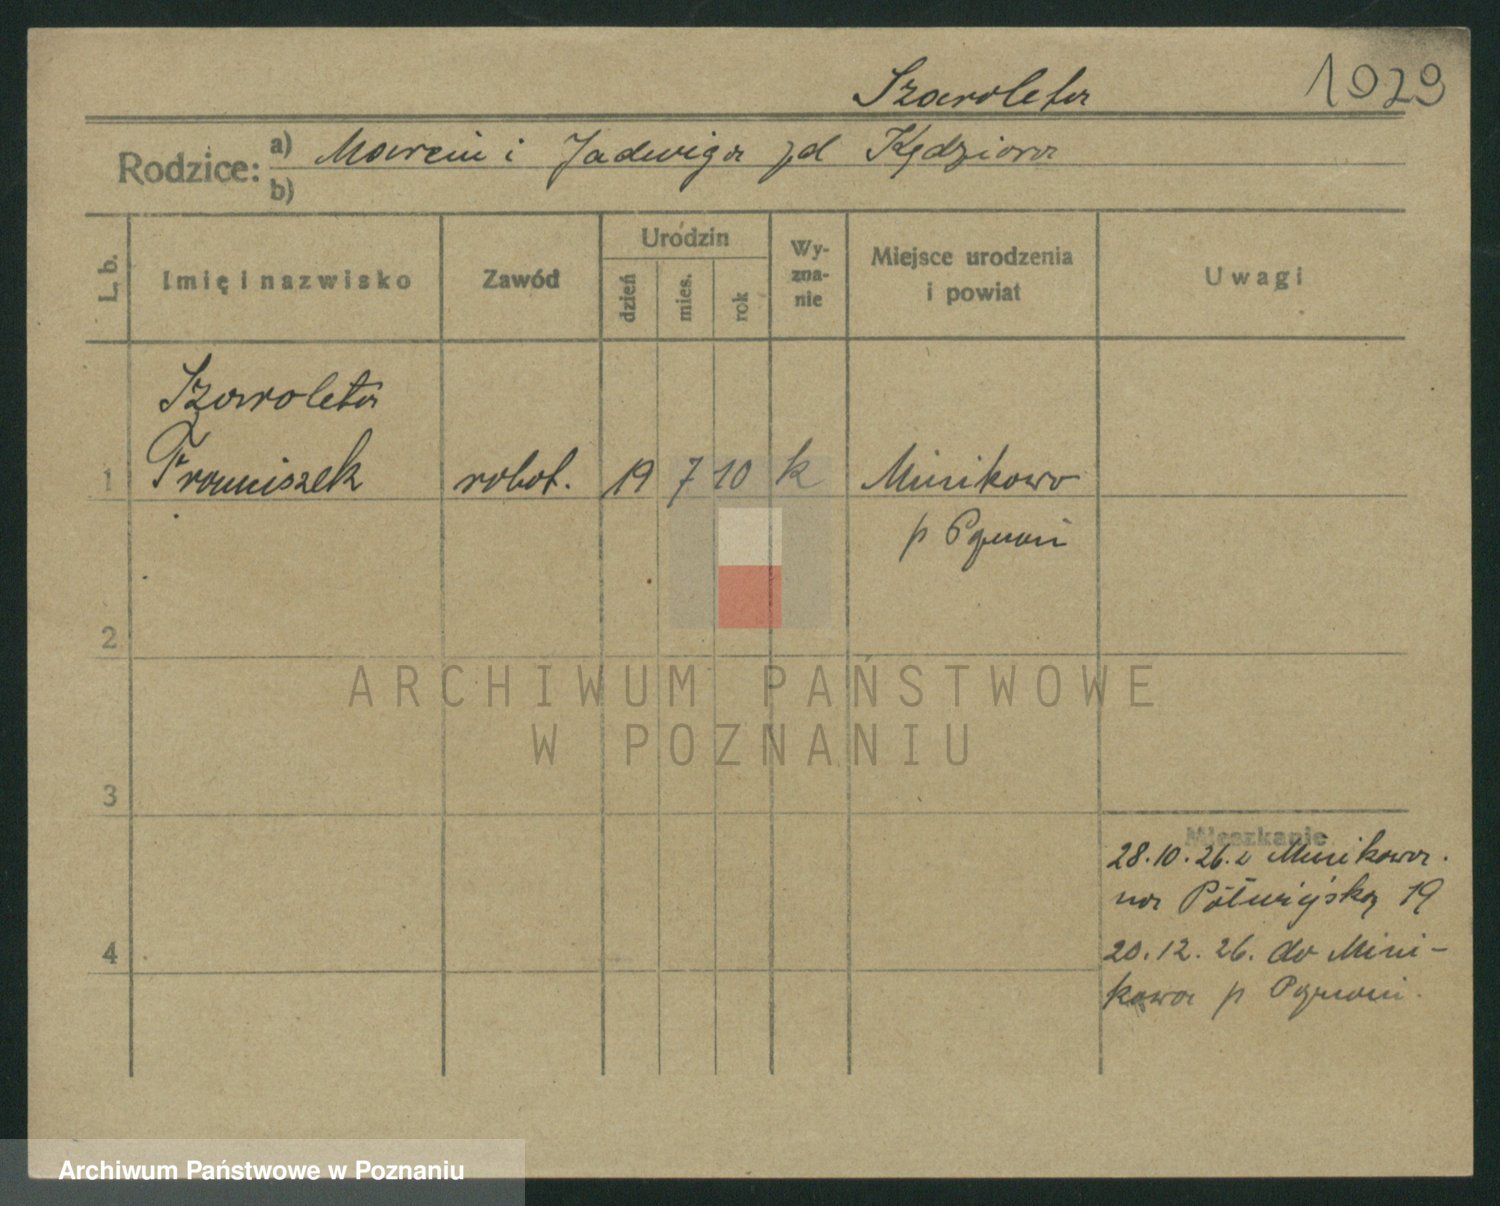 Szaroleta 1929
Rodzice: a) Marcin i Jadwiga zd Kędziora
b)
L. b. Imię i nazwisko Zawód Urodzin dzień mies. rok Wyznanie Miejsce urodzenia i powiat Uwagi
Szaroleta
1 Franciszek robot. 19 7 10 k Minikowo
p Poznań
2
ARCHIWUM PAŃSTWOWE
W POZNANIU
3
Mieszkanie
28.10.26. z Minikowa.
na Półwiejską 19
4
20.12.26. do Mini-
kowa p Poznań.
Archiwum Państwowe w Poznaniu